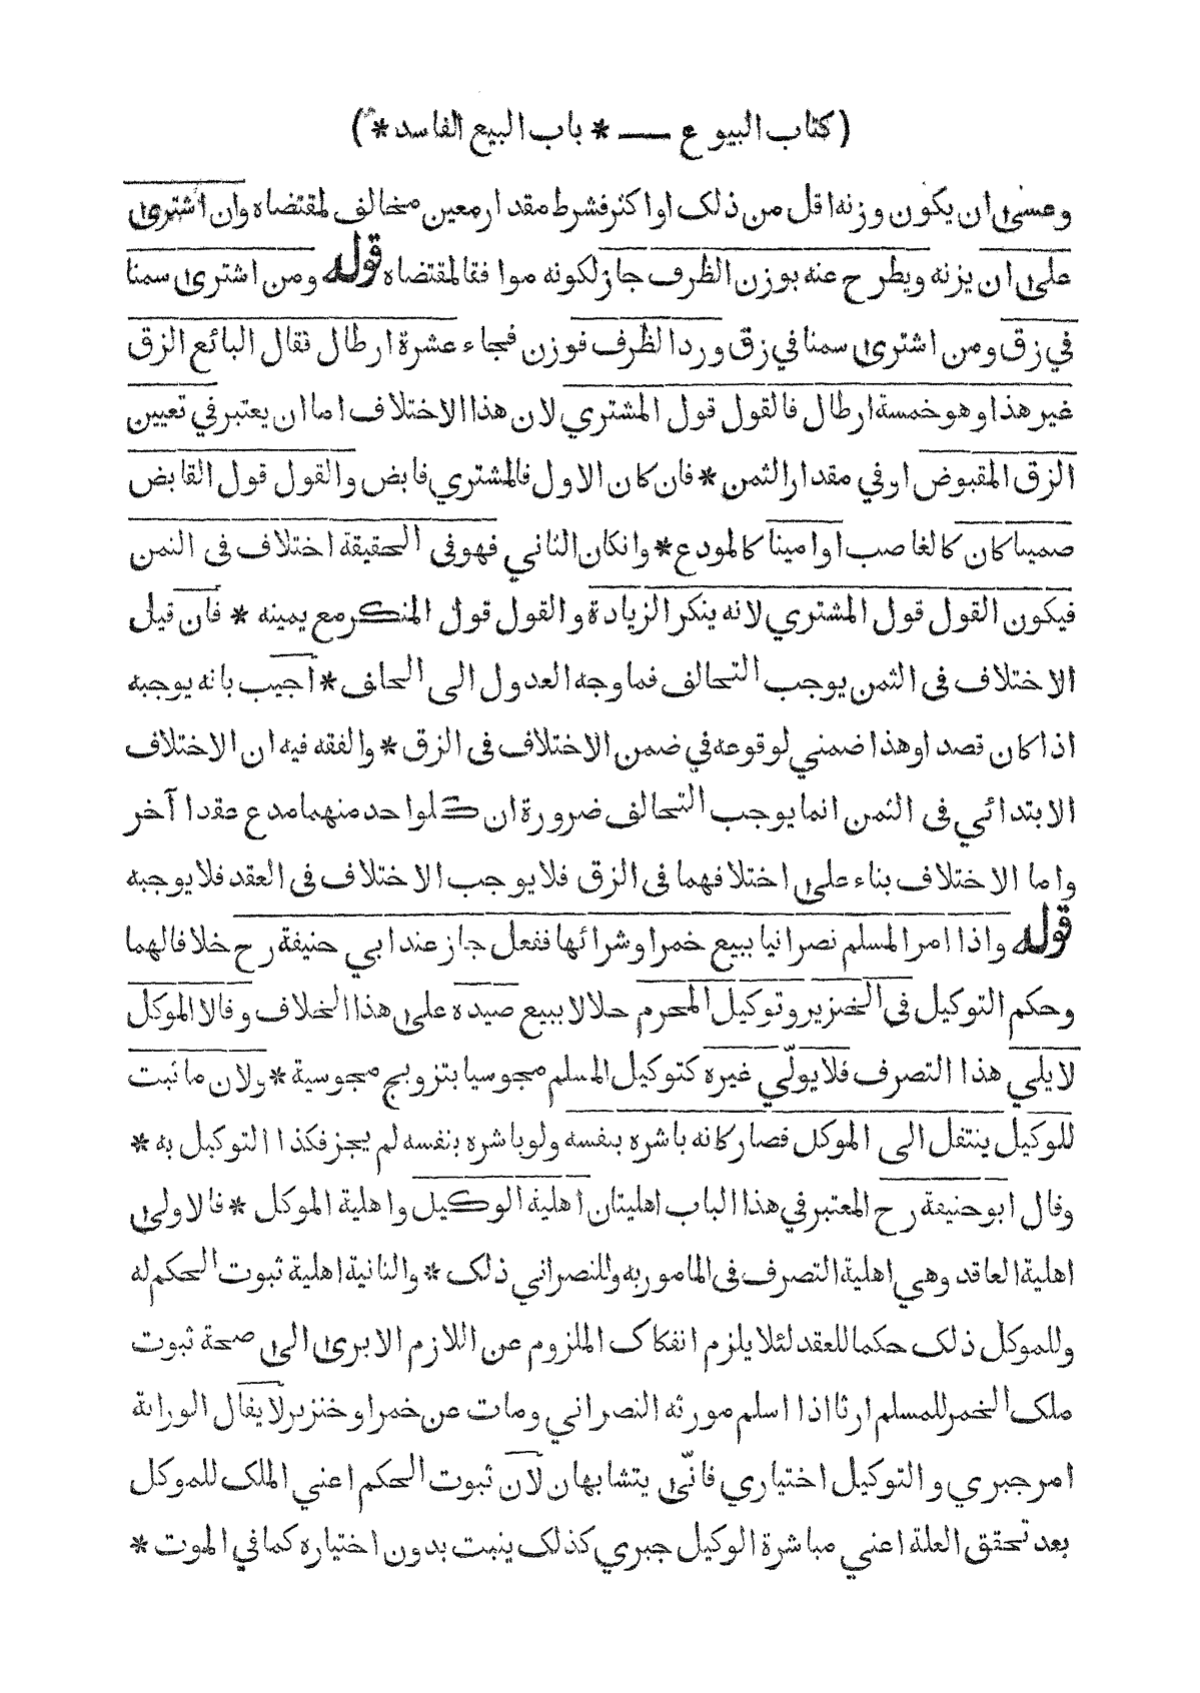 (كتاب البيوع — * باب البيع الفاسد *)
وعسى ان يكون وزنه اقل من ذلك او اكثر فشرط مقدار معين مخالف لمقتضاه وان اشترى
على ان يزنه ويطرح عنه بوزن الظرف جاز لكونه موافقا لمقتضاه قوله ومن اشترى سمنا
في زق ومن اشترى سمنا في زق ورد الظرف فوزن فجاء عشرة ارطال فقال البائع الزق
غير هذا وهو خمسة ارطال فالقول قول المشتري لان هذا الاختلاف اما ان يعتبر في تعيين
الزق المقبوض او في مقدار الثمن * فان كان الاول فالمشتري قابض والقول قول القابض
ضمينا كان كالغاصب او امينا كالمودع * وانكان الثاني فهو في الحقيقة اختلاف في الثمن
فيكون القول قول المشتري لانه ينكر الزيادة والقول قول المنكر مع يمينه * فان قيل
الاختلاف في الثمن يوجب التحالف فما وجه العدول الى الحلف * اجيب بانه يوجبه
اذا كان قصدا وهذا ضمني لوقوعه في ضمن الاختلاف في الزق * والفقه فيه ان الاختلاف
الابتدائي في الثمن انما يوجب التحالف ضرورة ان كلواحد منهما مدع عقدا آخر
واما الاختلاف بناء على اختلافهما في الزق فلا يوجب الاختلاف في العقد فلا يوجبه
قوله واذا امر المسلم نصرانيا ببيع خمر او شرائها ففعل جاز عند ابي حنيفة رح خلافا لهما
وحكم التوكيل في الخنزير وتوكيل المحرم حلالا ببيع صيده على هذا الخلاف وقالا الموكل
لا يلي هذا التصرف فلا يولّي غيره كتوكيل المسلم مجوسيا بتزويج مجوسية * ولان ما ثبت
للوكيل ينتقل الى الموكل فصار كانه باشره بنفسه ولو باشره بنفسه لم يجز فكذا التوكيل به *
وقال ابو حنيفة رح المعتبر في هذا الباب اهليتان اهلية الوكيل واهلية الموكل * فالاولى
اهلية العاقد وهي اهلية التصرف في المامور به وللنصراني ذلك * والثانية اهلية ثبوت الحكم له
وللموكل ذلك حكما للعقد لئلا يلزم انفكاك الملزوم عن اللازم الا برى الى صحة ثبوت
ملك الخمر للمسلم ارثا اذا اسلم مورثه النصراني ومات عن خمر او خنزير لا يقال الوراثة
امر جبري والتوكيل اختياري فانّى يتشابهان لان ثبوت الحكم اعني الملك للموكل
بعد تحقق العلة اعني مباشرة الوكيل جبري كذلك يثبت بدون اختياره كما في الموت *